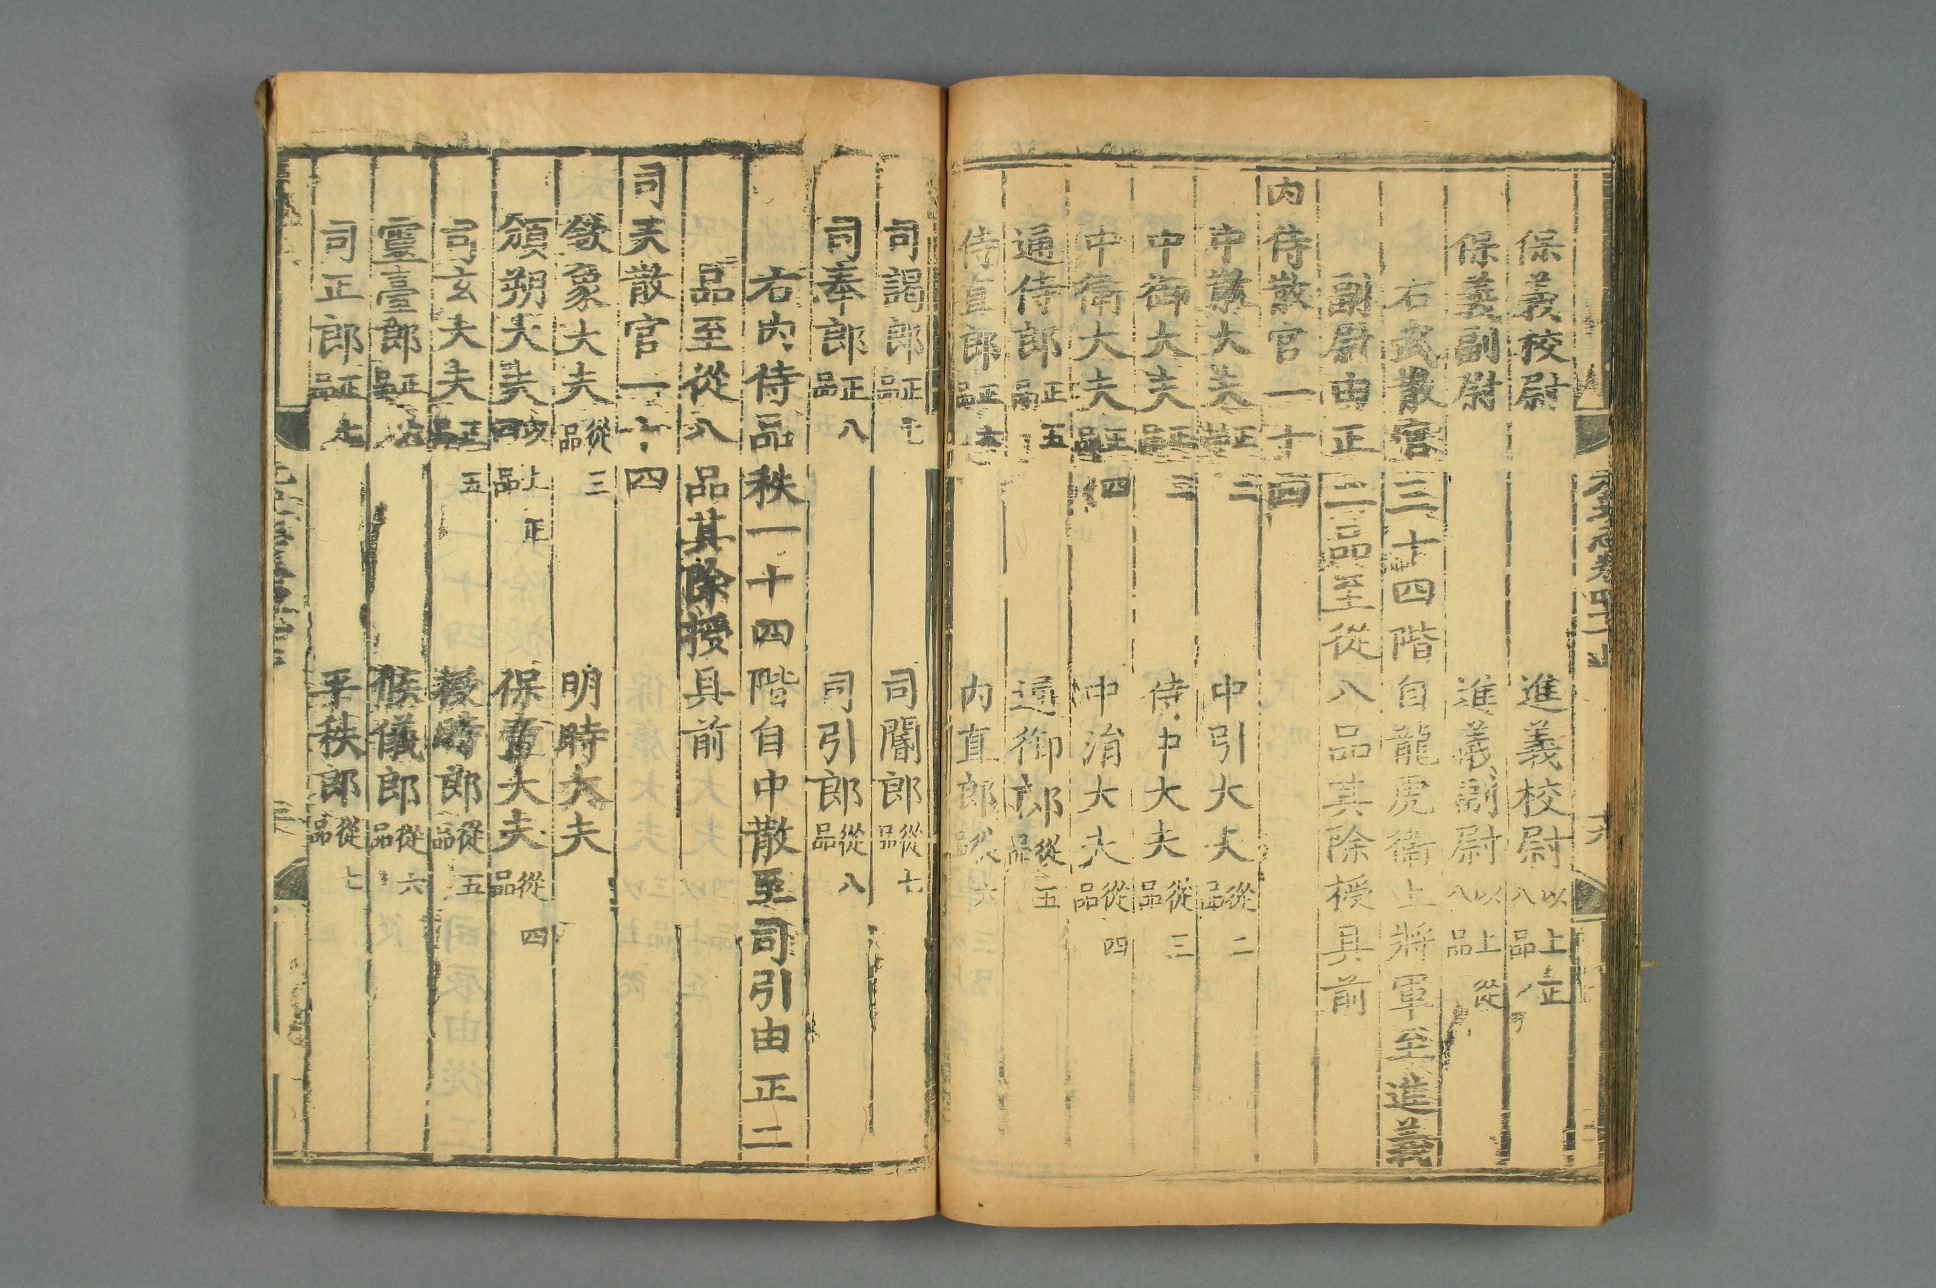 保義校尉 進義校尉以上正八品
保義副尉 進義副尉以上從八品
右武散官三十四階自龍虎衛上將軍至進義
副尉由正二品至從八品其除授具前
内侍散官一十四
中散大夫正二品 中引大夫從二品
中御大夫正三品 侍中大夫從三品
中衛大夫正四品 中涓大夫從四品
通侍郎正五品 通御郎從五品
侍直郎正六品 内直郎從六品
司謁郎正七品 司閽郎從七品
司奉郎正八品 司引郎從八品
右内侍品秩一十四階自中散至司引由正二
品至從八品其除授具前
司天散官一十四
欽象大夫從三品 明時大夫
頒朔大夫以上正四品 保章大夫從四品
司玄大夫正五品 授時郎從五品
靈臺郎正六品 候儀郎從六品
司正郎正七品 平秩郎從七品